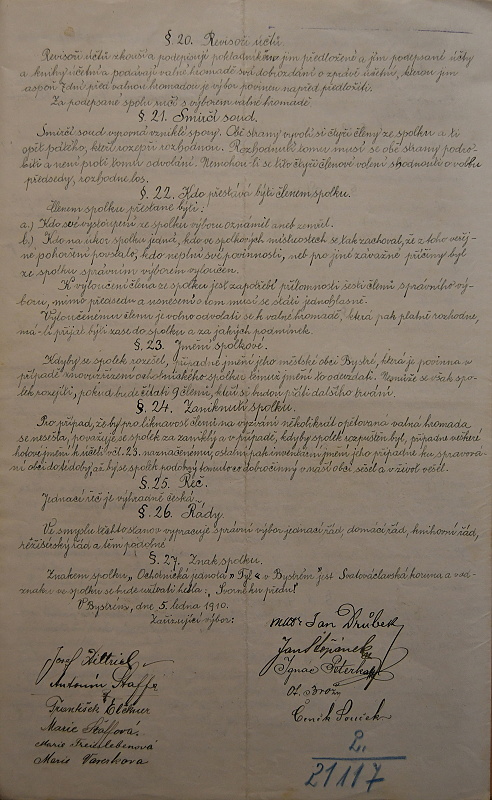 §. 20. Revisoři účtů
Revisoři účtů zkouší a podepisují pokladníkem jim předložené a jím podepsané účty
a knihy účetní a podávají valné hromadě své dobrozdání o zprávě účetní, kterou jim
aspoň 7 dní před valnou hromadou je výbor povinen napřed předložiti.
Za podepsané spolu ručí s výborem valné hromadě.
§. 21. Smírčí soud.
Smírčí soud urovná vzniklé spory. Obě strany vyvolí si čtyři členy ze spolku a ti
opět pátého, kterí rozepři rozhodnou. Rozhodnutí tomu musí se obě strany podro-
biti a není proti tomu odvolání. Nemohou-li se tito čtyři členové volení shodnouti o volbu
předsedy, rozhodne los.
§. 22. Kdo přestává býti členem spolku.
Členem spolku přestane býti:
a.) Kdo své vystoupení ze spolku výboru oznámil aneb zemřel.
b.) Kdo na úkor spolku jedná, kdo ve spolkových místnostech se tak zachoval, že z toho veřej-
né pohoršení povstalo, kdo neplní své povinnosti, neb pro jiné závažné příčiny byl
ze spolku správním výborem vyloučen.
K vyloučení člena ze spolku jest zapotřebí přítomnosti šesti členů správního vý-
boru, mimo předsedu a usnesení o tom musí se státi jednohlasně.
Vyloučenému členu je volno odvolati se k valné hromadě, která pak platně rozhodne,
má-li přijat býti zase do spolku a za jakých podmínek.
§. 23. Jmění spolkové.
Kdyby se spolek rozešel, připadne jmění jeho městské obci Bystré, která je povinna v
případě znovuzřízení ochotnického spolku témuž jmění to odevzdati. Nemůže se však spo-
lek rozejíti, pokud bude čítati 9 členů, kteří se budou přiti dalšího trvání.
§. 24. Zaniknutí spolku.
Pro případ, že by pro liknavost členů na vyzvání několikrát opětovaná valná hromada
se nesešla, považuje se spolek za zaniklý a v případě, kdyby spolek rozpuštěn byl, připadne veškeré
hotové jmění k účelu v čl. 23. naznačenému, ostatní pak inventární jmění jeho připadne ku spravová-
ní obci do té doby až by se spolek podobný tomuto co dobročinný v naší obci sešel a v život vešel.
§. 25. Řeč.
Jednací řeč je výhradně česká.
§. 26. Řády.
Ve smyslu těchto stanov vypracuje správní výbor jednací řád, domácí řád, knihovní řád,
režisérský řád a těm podobné.
§. 27. Znak spolku.
Znakem spolku „Ochotnická jednota "Tyl" v Bystrém" jest Svatováclavská koruna a co
znaku ve spolku se bude užívati hesla: „Svorně ku předu!"
V Bystrém, dne 5. ledna 1910.
Zařizující výbor:
Jan Drábek
Josef Dittrich
Jan Štěpánek
Antonín Štaffe
Ignác Peterka
František Elckner
Marie Štaffova
Čeněk Souček
Marie Freislebenová
Marie Vareskova
2.
21117